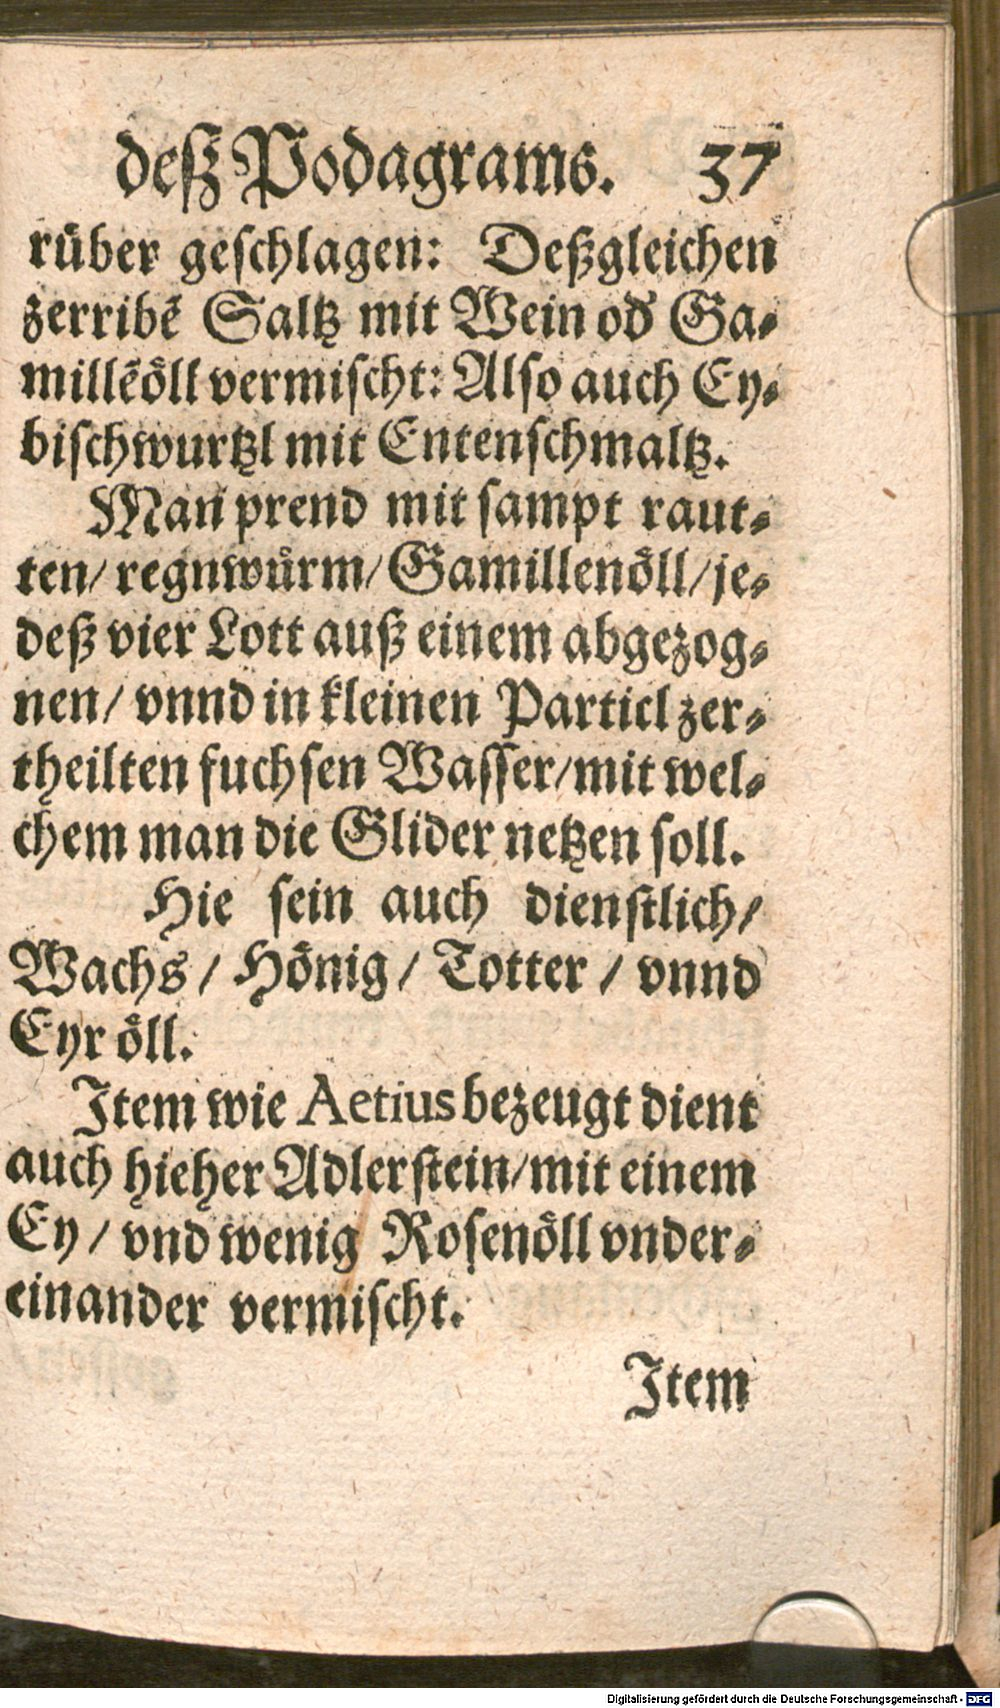 deß Podagrams. 37
rüber geschlagen: Deßgleichen
zerribẽ Saltz mit Wein od' Ga⸗
millẽöll vermischt: Also auch Ey⸗
bischwurtzl mit Entenschmaltz.
Man prend mit sampt raut⸗
ten/ regnwürm/ Gamillenöll/ je⸗
deß vier Lott auß einem abgezog⸗
nen/ vnnd in kleinen Particl zer⸗
theilten fuchsen Wasser/ mit wel⸗
chem man die Glider netzen soll.
Hie sein auch dienstlich/
Wachs / Hönig / Totter / vnnd
Eyr öll.
Item wie Aetius bezeugt dient
auch hieher Adlerstein/ mit einem
Ey / vnd wenig Rosenöll vnder⸗
einander vermischt.
Item
Digitalisierung gefördert durch die Deutsche Forschungsgemeinschaft - DFG